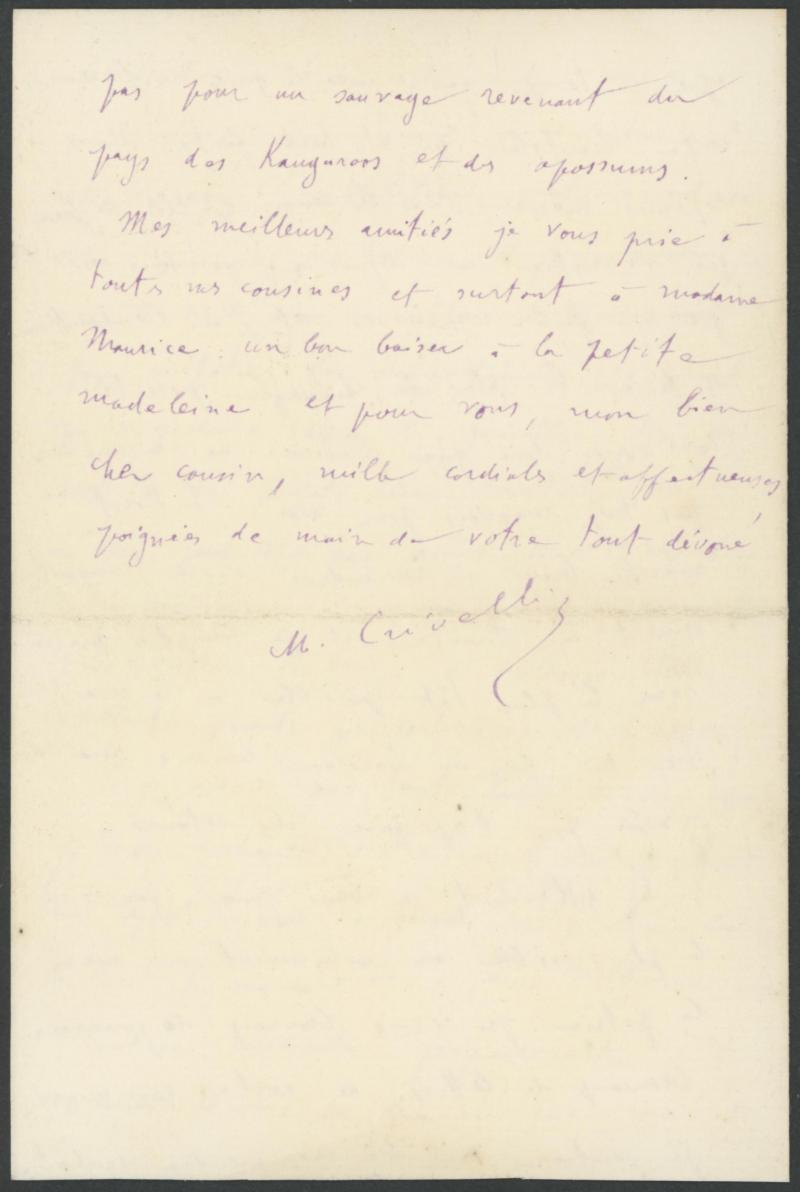 pas pour un sauvage revenant du
pays des Kanguroos et des opossums.
Mes meilleurs amitiés je vous prie à
toutes mes cousines et surtout à madame
Maurice. un bon baiser à la petite
madeleine et pour vous, mon bien
cher cousin, mille cordiales et affectueuses
poignées de main de votre tout dévoué
M. Crivelli